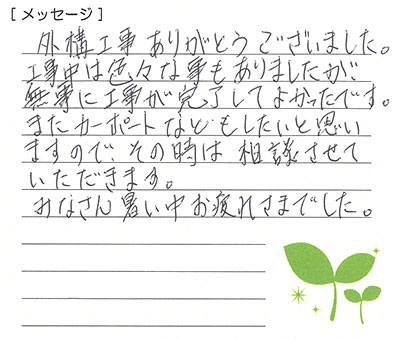 [メッセージ]
外構工事 ありがとうございました。
工事中は色々な事もありましたが、
無事に工事が完了してよかったです。
またカーポートなどもしたいと思い
ますので、その時は 相談させて
いただきます。
みなさん暑い中お疲れさまでした。